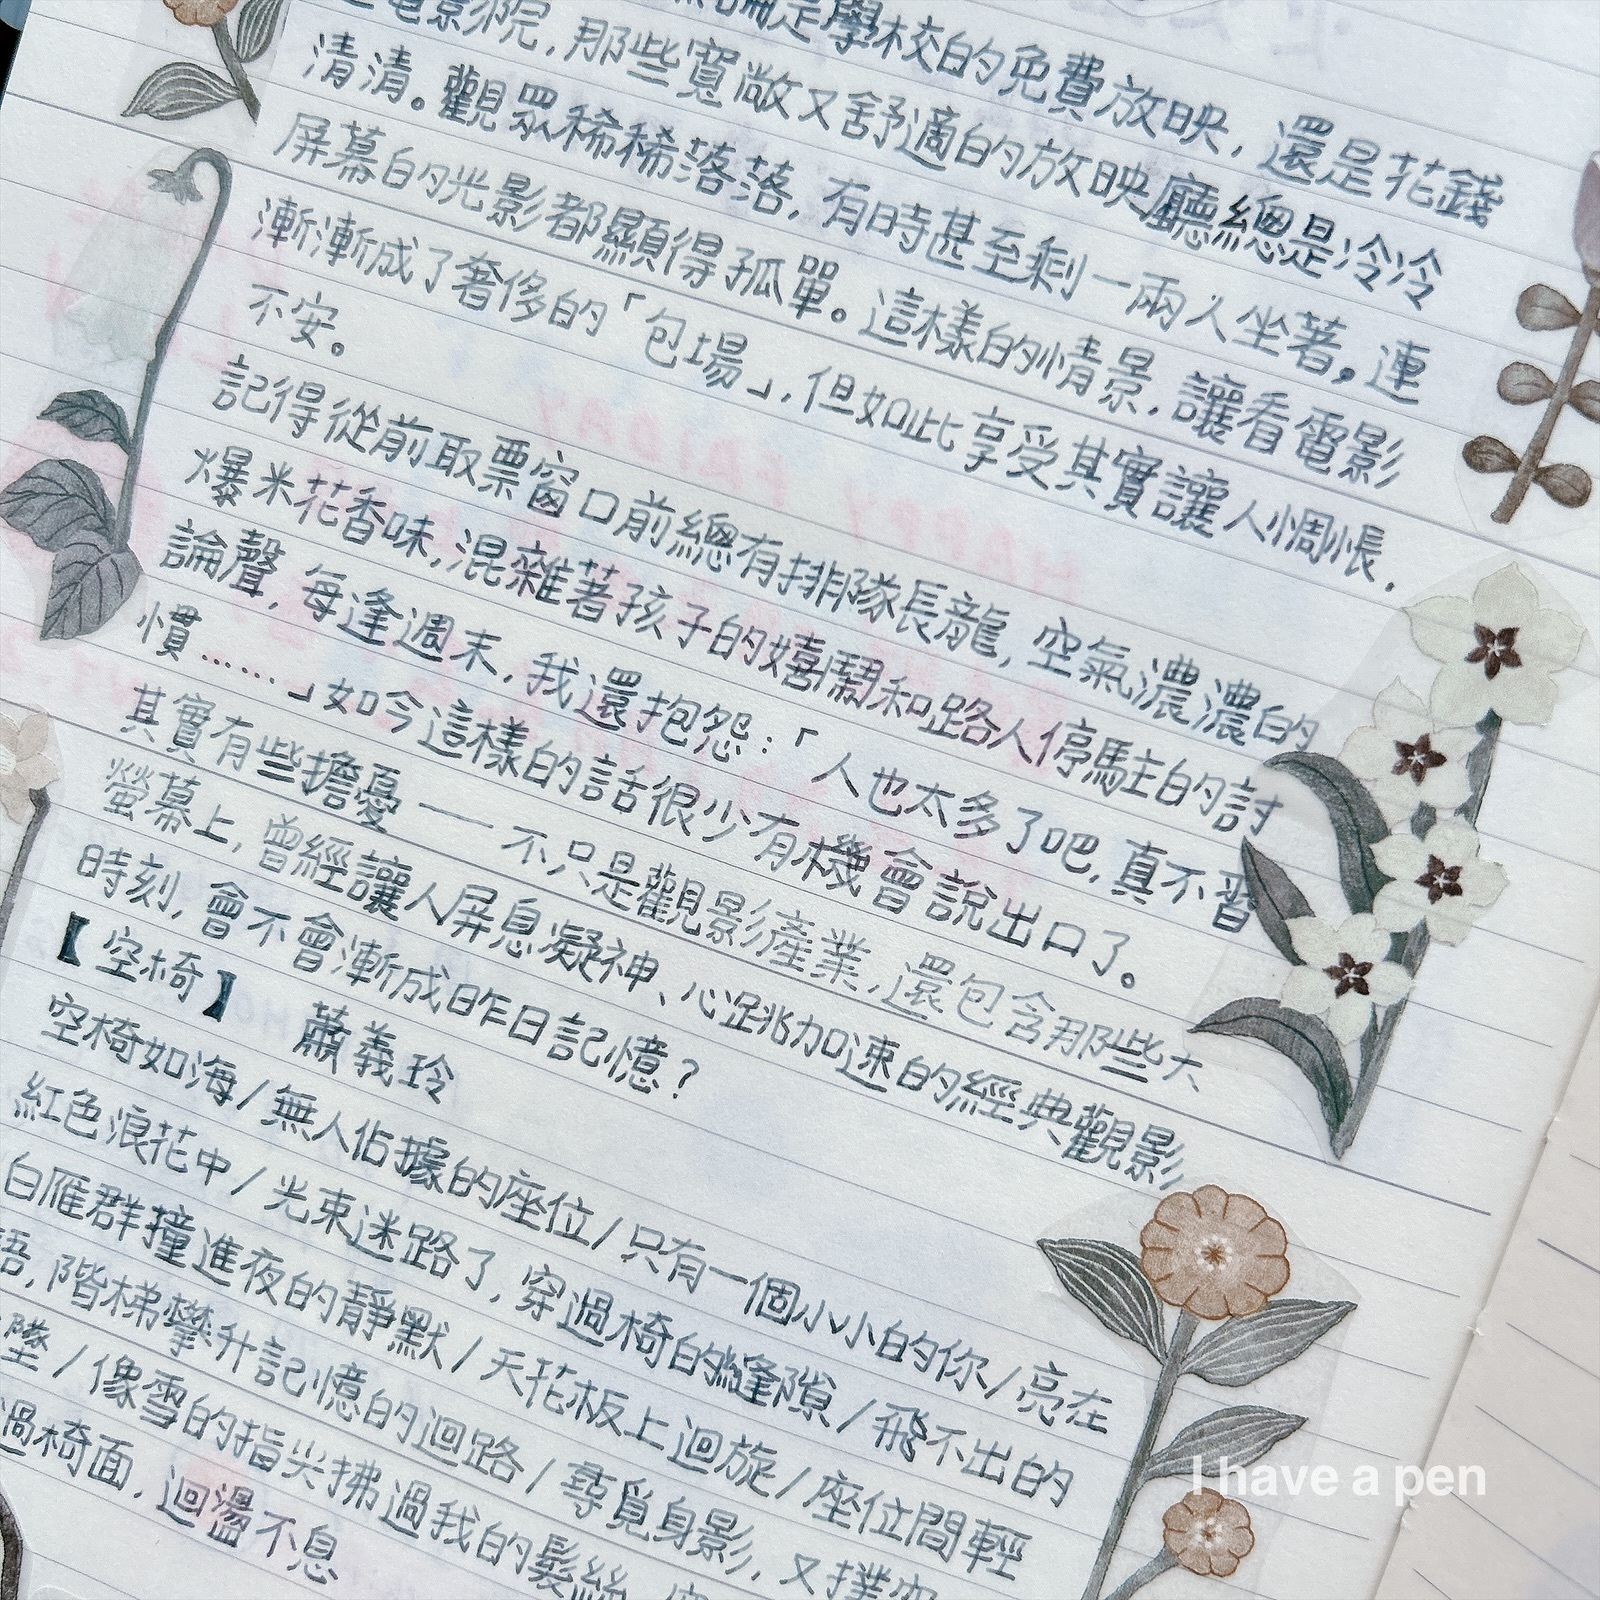 論是學校的免費放映，還是花錢
電影院，那些寬敞又舒適的放映廳總是冷冷
清清。觀眾稀稀落落，有時甚至剩一兩人坐著，連
屏幕的光影都顯得孤單。這樣的情景，讓看電影
漸漸成了奢侈的「包場」，但如此享受其實讓人惆悵，
不安。
記得從前取票窗口前總有排隊長龍，空氣濃濃的
爆米花香味，混雜著孩子的嬉鬧和路人停駐的討
論聲，每逢週末，我還抱怨：「人也太多了吧，真不習
慣……」如今這樣的話很少有機會說出口了。
其實有些擔憂——不只是觀影產業，還包含那些大
螢幕上，曾經讓人屏息凝神、心跳加速的經典觀影
時刻，會不會漸成昨日記憶？
【空椅】 蕭義玲
空椅如海/無人佔據的座位/只有一個小小的你/亮在
紅色浪花中/光束迷路了，穿過椅的縫隙/飛不出的
白雁群撞進夜的靜默/天花板上迴旋/座位間輕
語，階梯攀升記憶的迴路/尋覓身影，又撲空
墜/像雪的指尖拂過我的髮絲
過椅面，迴盪不息
I have a pen